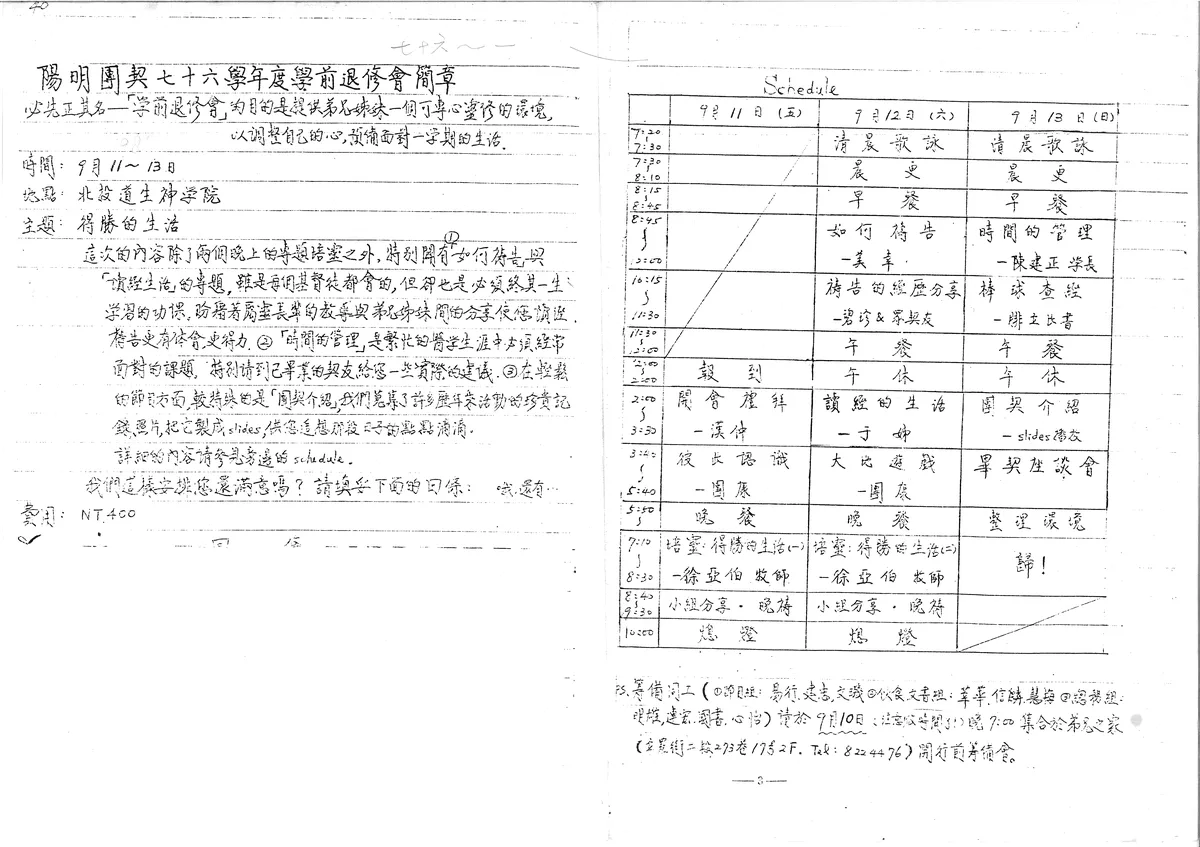 40
七十六~一
陽明團契七十六學年度學前退修會簡章
必先正其名──「学前退修會」的目的是提供弟兄姊妹一個可專心靈修的環境,
以調整自己的心,預備面對一学期的生活.
時間: 9月11~13日
地點: 北投道生神学院
主題: 得勝的生活
這次的內容除了兩個晚上的專題培靈之外,特別開有①「如何禱告」與
「讀經生活」的專題,雖是每個基督徒都會的,但卻也是必須終其一生
学習的功課,盼藉著屬靈長輩的教導與弟兄姊妹間的分享使您讀經
禱告更有体會,更得力.②「時間的管理」是繁忙的醫学生涯中必須經常
面對的課題,特別請到已畢業的契友給您一些實際的建議.③在輕鬆
的節目方面,較特殊的是「團契介紹」,我們蒐集了許多歷年來活動的珍貴記
錄、照片,把它製成slides,供您追想那段日子的點點滴滴.
詳細的內容請參見旁邊的schedule.
我們這樣安排您還滿意嗎?請填妥下面的回條: 哦.還有…
費用: NT.400
回 條
Schedule
9月11日(五) 9月12日(六) 9月13日(日)
7:20 ~ 7:30 清晨歌詠 清晨歌詠
7:30 ~ 8:10 晨更 晨更
8:15 ~ 8:45 早餐 早餐
8:45 ~ 如何禱告 時間的管理
─美幸. ─陳建正学長
10:15 ~ 禱告的經歷分享 棒球查經
11:30 ─碧珍&眾契友 ─腓立比書
11:30 ~ 12:00 午餐 午餐
12:00 ~ 2:00 報到 午休 午休
2:00 ~ 開會禮拜 讀經的生活 團契介紹
3:30 ─漢仲 ─于姊 ─slides
3:40 ~ 彼此認識 大地遊戲 畢契座談會
5:40 ─團康 ─團康
5:50 ~ 晚餐 晚餐 整理環境
7:10 ~ 培靈:得勝的生活(一) 培靈:得勝的生活(二) 歸!
8:30 ─徐亞伯牧師 ─徐亞伯牧師
8:40 ~ 9:30 小組分享.晚禱 小組分享.晚禱
10:00 熄燈 熄燈
PS.籌備同工(①節目組:易行,建志,文 ②伙食文書組:華,信麟,慧梅③總務組:
明雄,建宏,國書,心怡)請於9月10日(注意時間!)晚7:00集合於弟兄之家
(立農街二段293巷17号2F. Tel: 8224476)開行前籌備會。
─3─